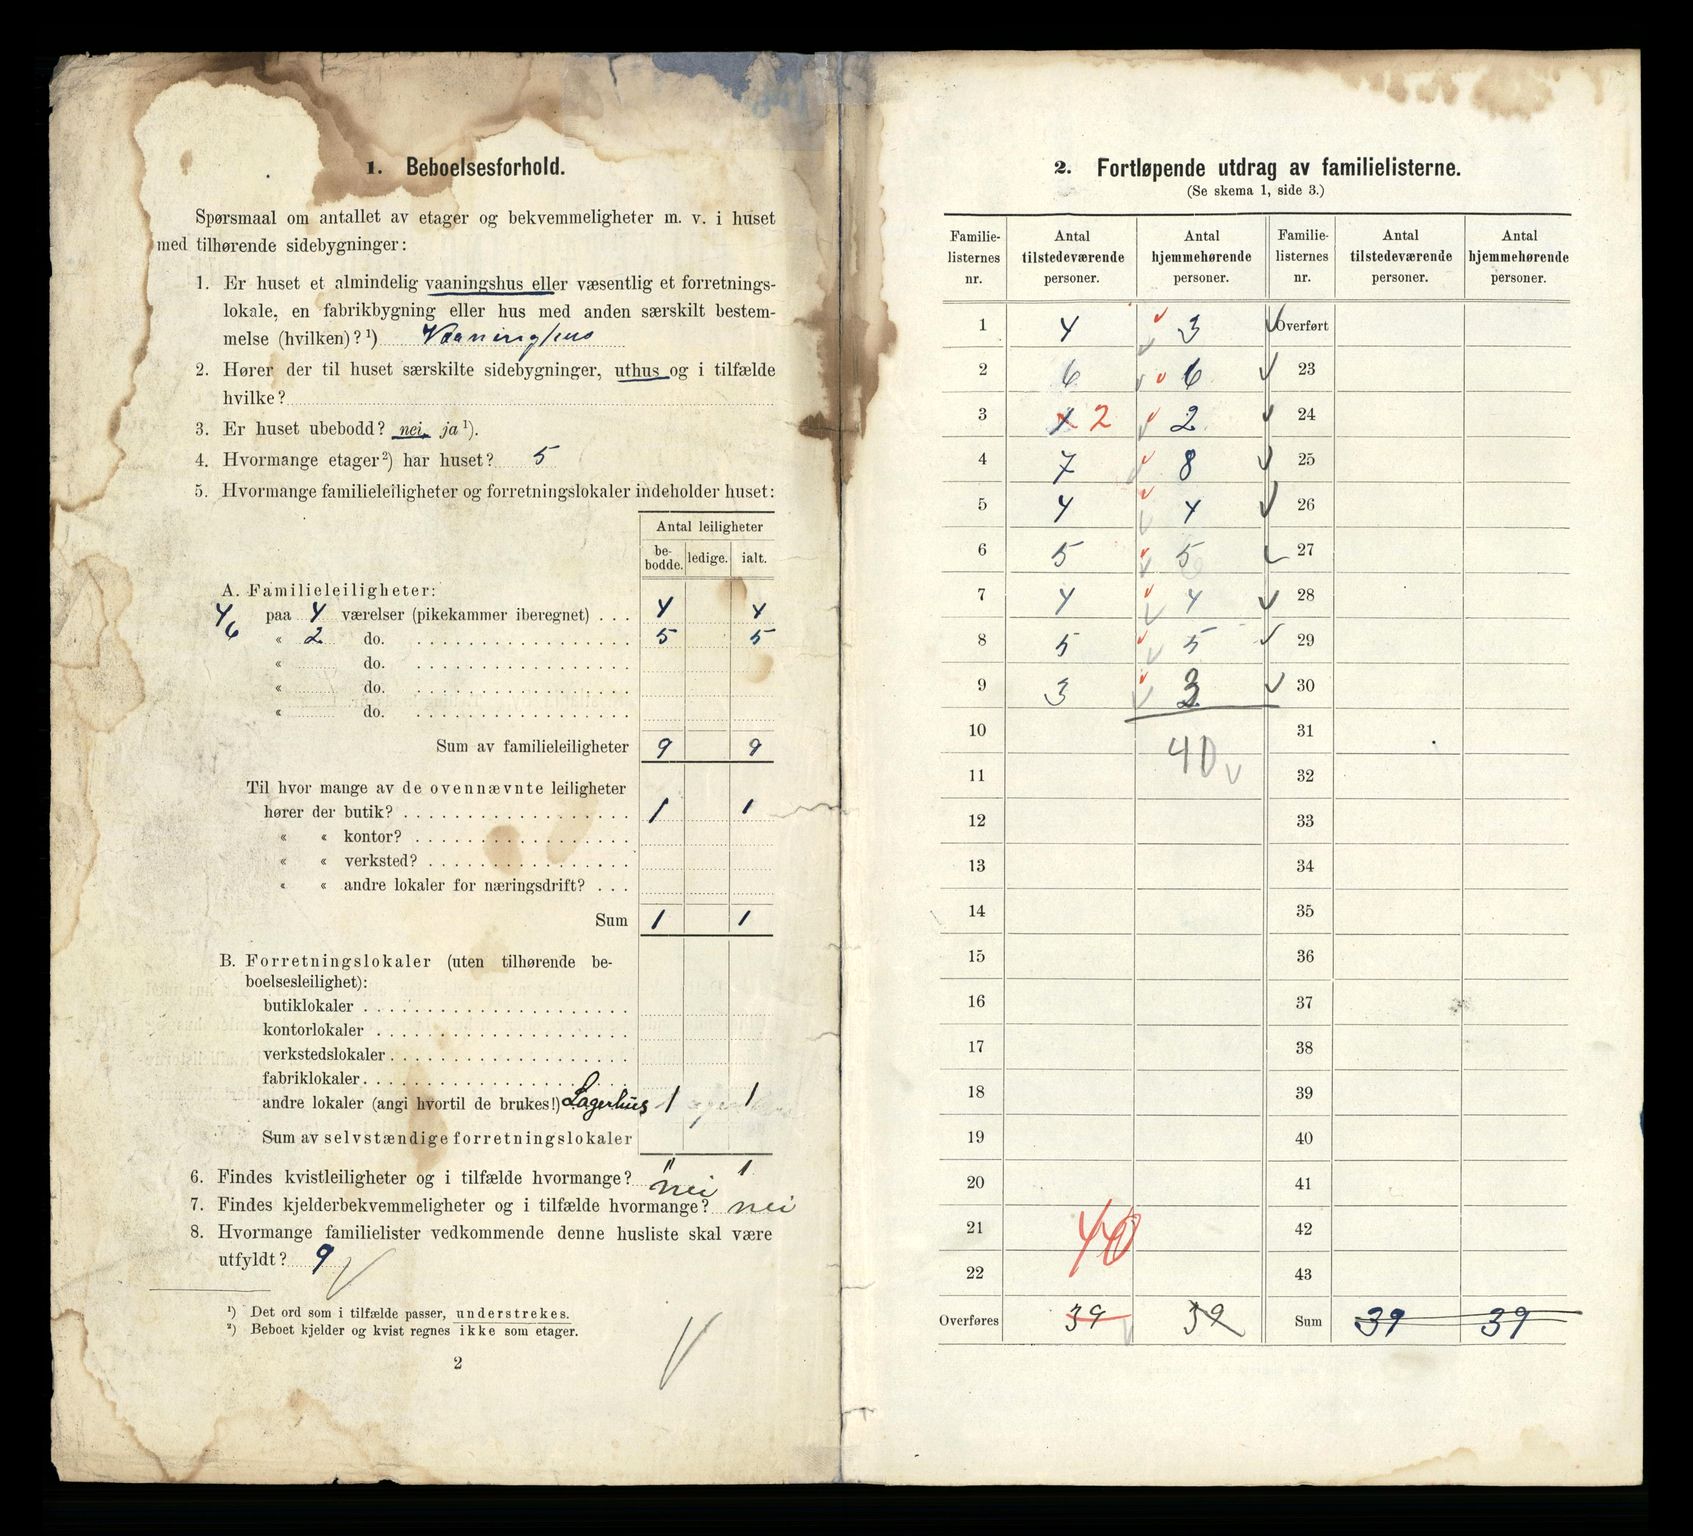 1. Beboelsesforhold.
Spørsmaal om antallet av etager og bekvemmeligheter m. v. i huset
med tilhørende sidebygninger:
1. Er huset et almindelig vaaningshus eller væsentlig et forretnings-
lokale, en fabrikbygning eller hus med anden særskilt bestem-
melse (hvilken)? ¹) Vaaninghus
2. Hører der til huset særskilte sidebygninger, uthus og i tilfælde
hvilke?
3. Er huset ubebodd? nei, ja ¹).
4. Hvormange etager ²) har huset? 5
5. Hvormange familieleiligheter og forretningslokaler indeholder huset:
Antal leiligheter
be-bodde. ledige. ialt.
A. Familieleiligheter:
4 paa 4 værelser (pikekammer iberegnet) . . . 4 4
6 « 2 do. 5 5
« do.
« do.
« do.
Sum av familieleiligheter 9 9
Til hvor mange av de ovennævnte leiligheter
hører der butik? 1 1
« « kontor?
« « verksted?
« « andre lokaler for næringsdrift? . . .
Sum 1 1
B. Forretningslokaler (uten tilhørende be-
boelsesleilighet):
butiklokaler
kontorlokaler
verkstedslokaler
fabriklokaler
andre lokaler (angi hvortil de brukes!) Lagerhus 1 1
Sum av selvstændige forretningslokaler
" 1
6. Findes kvistleiligheter og i tilfælde hvormange? nei
7. Findes kjelderbekvemmeligheter og i tilfælde hvormange? nei
8. Hvormange familielister vedkommende denne husliste skal være
utfyldt? 9
¹) Det ord som i tilfælde passer, understrekes.
²) Beboet kjelder og kvist regnes ikke som etager.
2
2. Fortløpende utdrag av familielisterne.
(Se skema 1, side 3.)
Familie-listernes nr. Antal tilstedeværende personer. Antal hjemmehørende personer. Familie-listernes nr. Antal tilstedeværende personer. Antal hjemmehørende personer.
1 4 3 Overført
2 6 6 23
3 2 2 24
4 7 8 25
5 4 4 26
6 5 5 27
7 4 4 28
8 5 5 29
9 3 3 30
10 31
11 40 32
12 33
13 34
14 35
15 36
16 37
17 38
18 39
19 40
20 41
21 40 42
22 43
Overføres 39 39 Sum 39 39